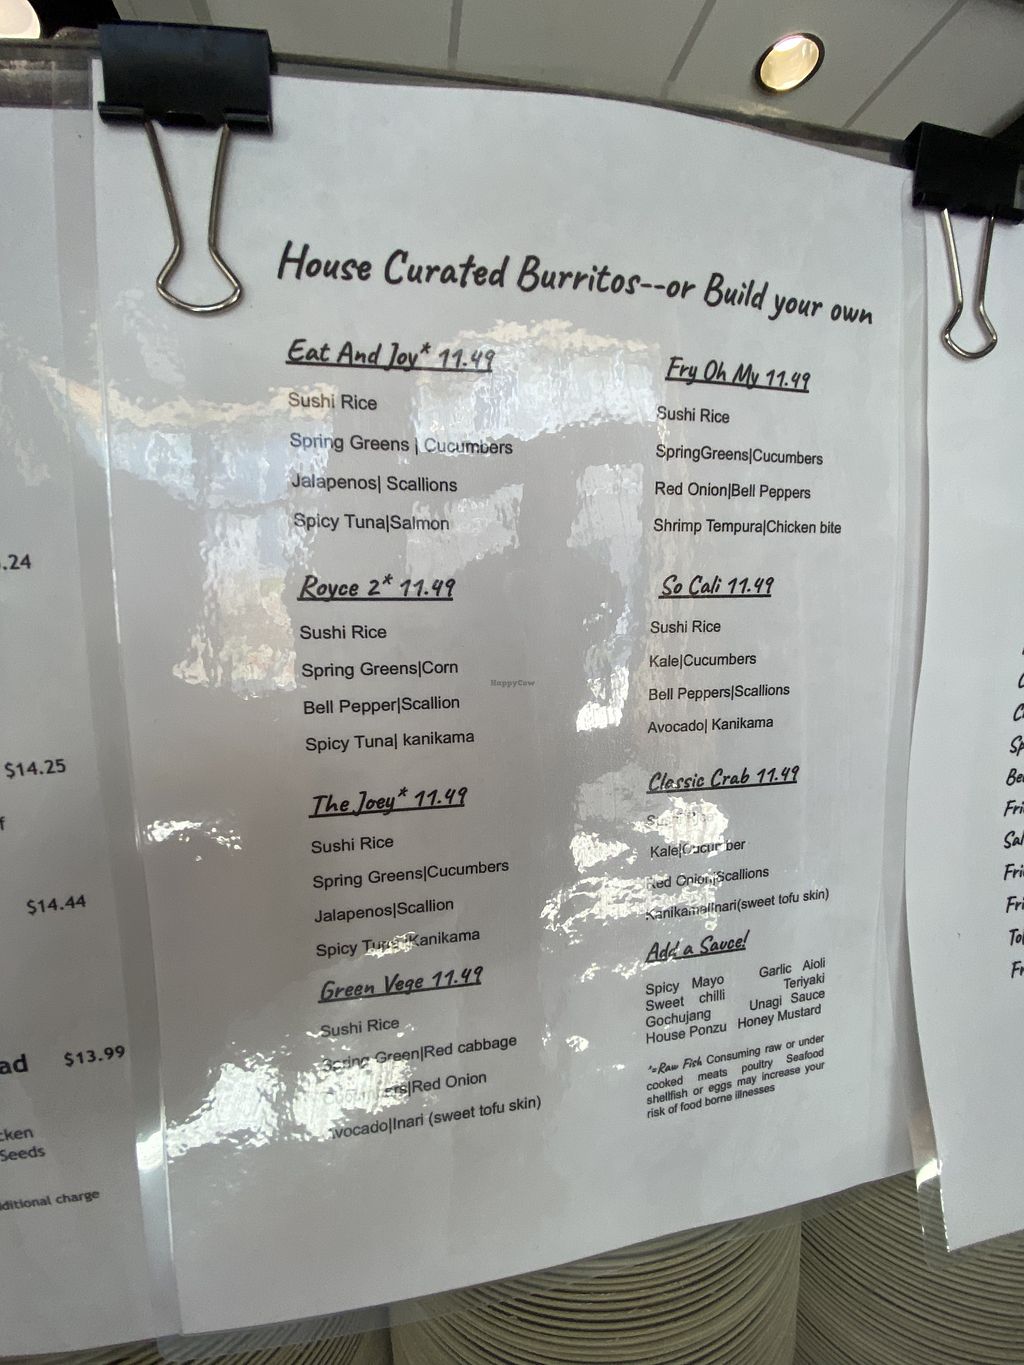 House Curated Burritos--or Build your own
Eat And Joy* 11.49
Sushi Rice
Spring Greens | Cucumbers
Jalapenos| Scallions
Spicy Tuna|Salmon
Royce 2* 11.49
Sushi Rice
Spring Greens|Corn
Bell Pepper|Scallion
Spicy Tuna| kanikama
The Joey* 11.49
Sushi Rice
Spring Greens|Cucumbers
Jalapenos|Scallion
Spicy Tuna|Kanikama
Green Vege 11.49
Sushi Rice
Spring Green|Red cabbage
Cucumbers|Red Onion
Avocado|Inari (sweet tofu skin)
Fry Oh My 11.49
Sushi Rice
SpringGreens|Cucumbers
Red Onion|Bell Peppers
Shrimp Tempura|Chicken bite
So Cali 11.49
Sushi Rice
Kale|Cucumbers
Bell Peppers|Scallions
Avocado| Kanikama
Classic Crab 11.49
Sushi Rice
Kale|Cucumber
Red Onion|Scallions
Kanikama|Inari(sweet tofu skin)
Add a Sauce!
Spicy Mayo Garlic Aioli
Sweet chilli Teriyaki
Gochujang Unagi Sauce
House Ponzu Honey Mustard
*=Raw Fish Consuming raw or under
cooked meats poultry Seafood
shellfish or eggs may increase your
risk of food borne illnesses
HappyCow
.24
$14.25
$14.44
$13.99
Seeds
charge